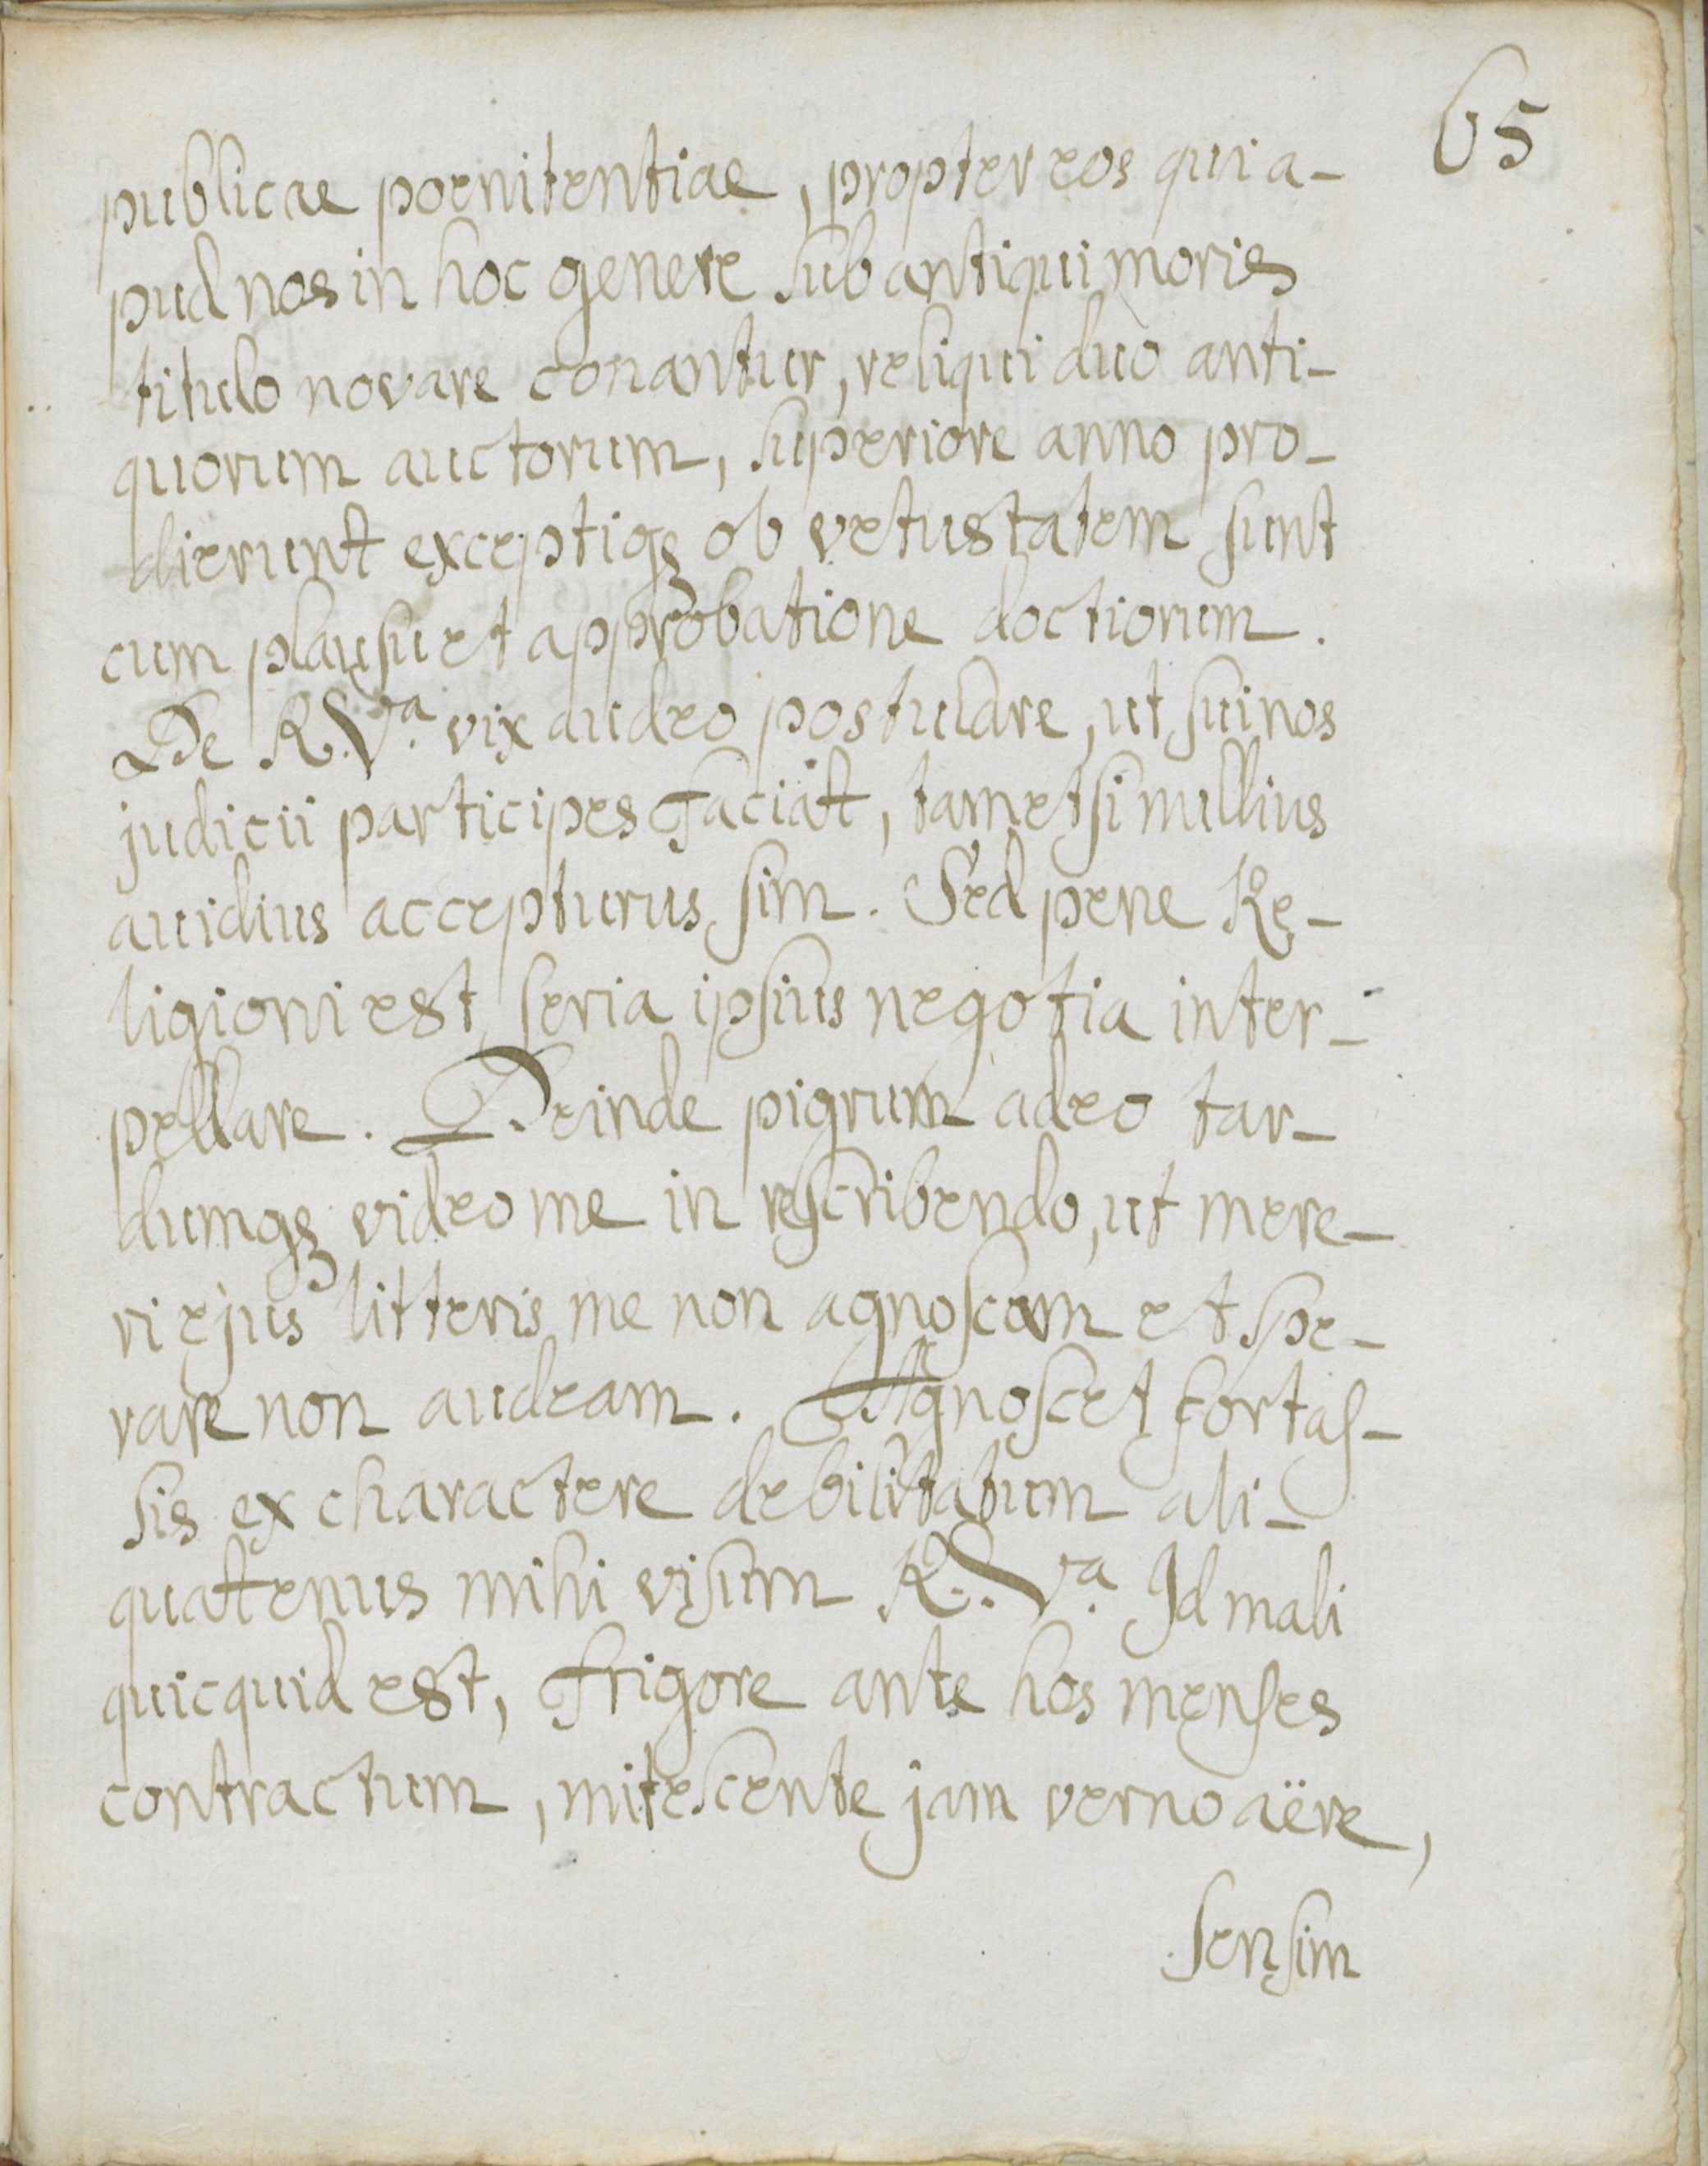 65
publicae poenitentiae, propter eos qui a-
pud nos in hoc genere sub antiqui moris
titulo novare conantur, reliqui duo anti-
quorum auctorum, superiore anno pro-
dierunt exceptiqꝫ ob vetustatem sunt
cum plausu et approbatione doctiorum.
De R. V.ª vix audeo postulare, ut sui nos
judicii participes faciat, tametsi nullius
auidius accepturus sim. Sed pene Re-
ligioni est seria ipsius negotia inter-
pellare. Deinde pigrum adeo tar-
dumqꝫ video me in rescribendo, ut mere-
ri ejus litteris me non agnoscam et spe-
rare non audeam. Agnoscet fortas-
sis ex charactere debilitatum ali-
quatenus mihi visum R. V.ª Id mali
quicquid est, frigore ante hos menses
contractum, mitescente jam verno aëre,
sensim